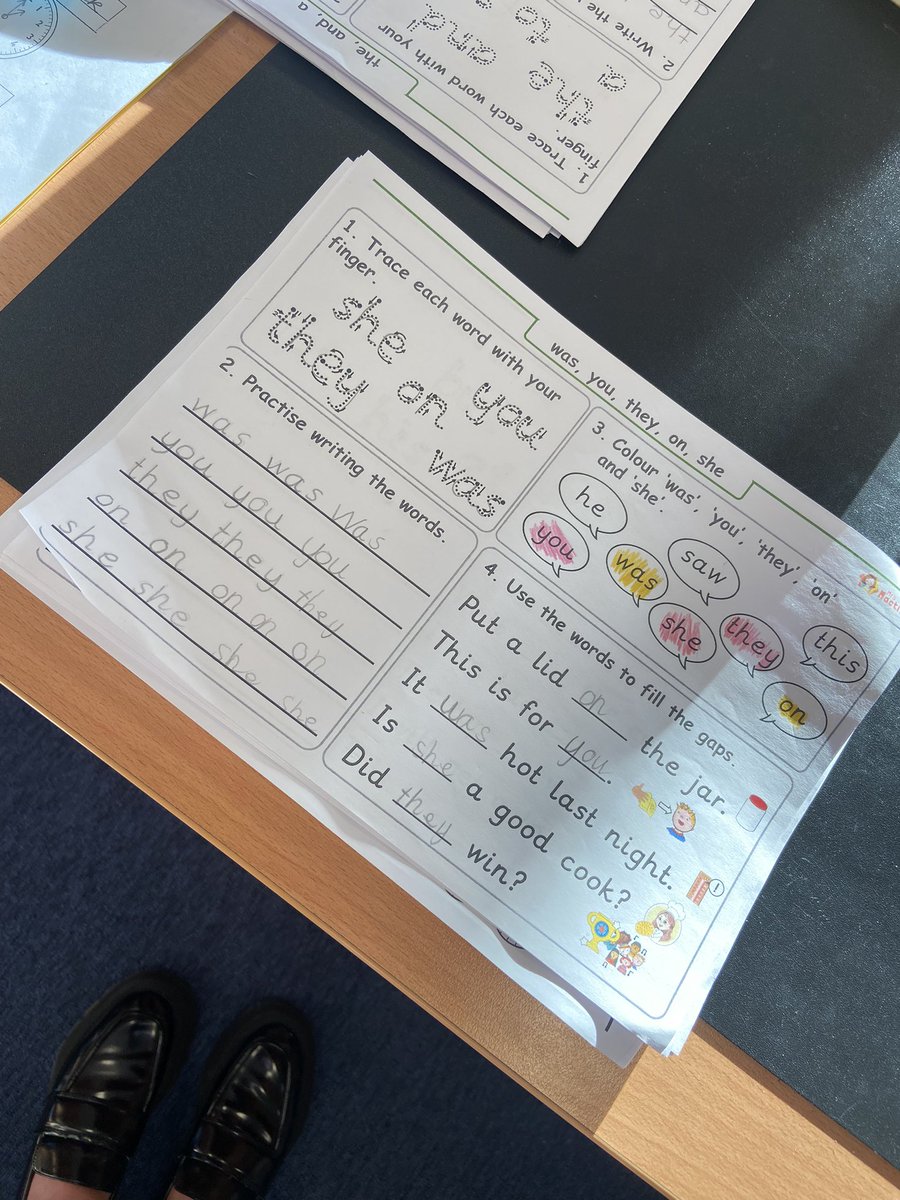 was, you, they, on, she
1. Trace each word with your
finger.
she you
they on was
2. Practise writing the words.
was was was
you you you
they they they
on on on on on
she she she she
3. Colour 'was', 'you', 'they', 'on'
and 'she'.
he
saw
this
you
was
she
they
on
4. Use the words to fill the gaps.
Put a lid on the jar.
This is for you.
It was hot last night.
Is she a good cook?
Did they win?
the, and, a
1. Trace each word with your
finger.
the and
a to
2. Write the